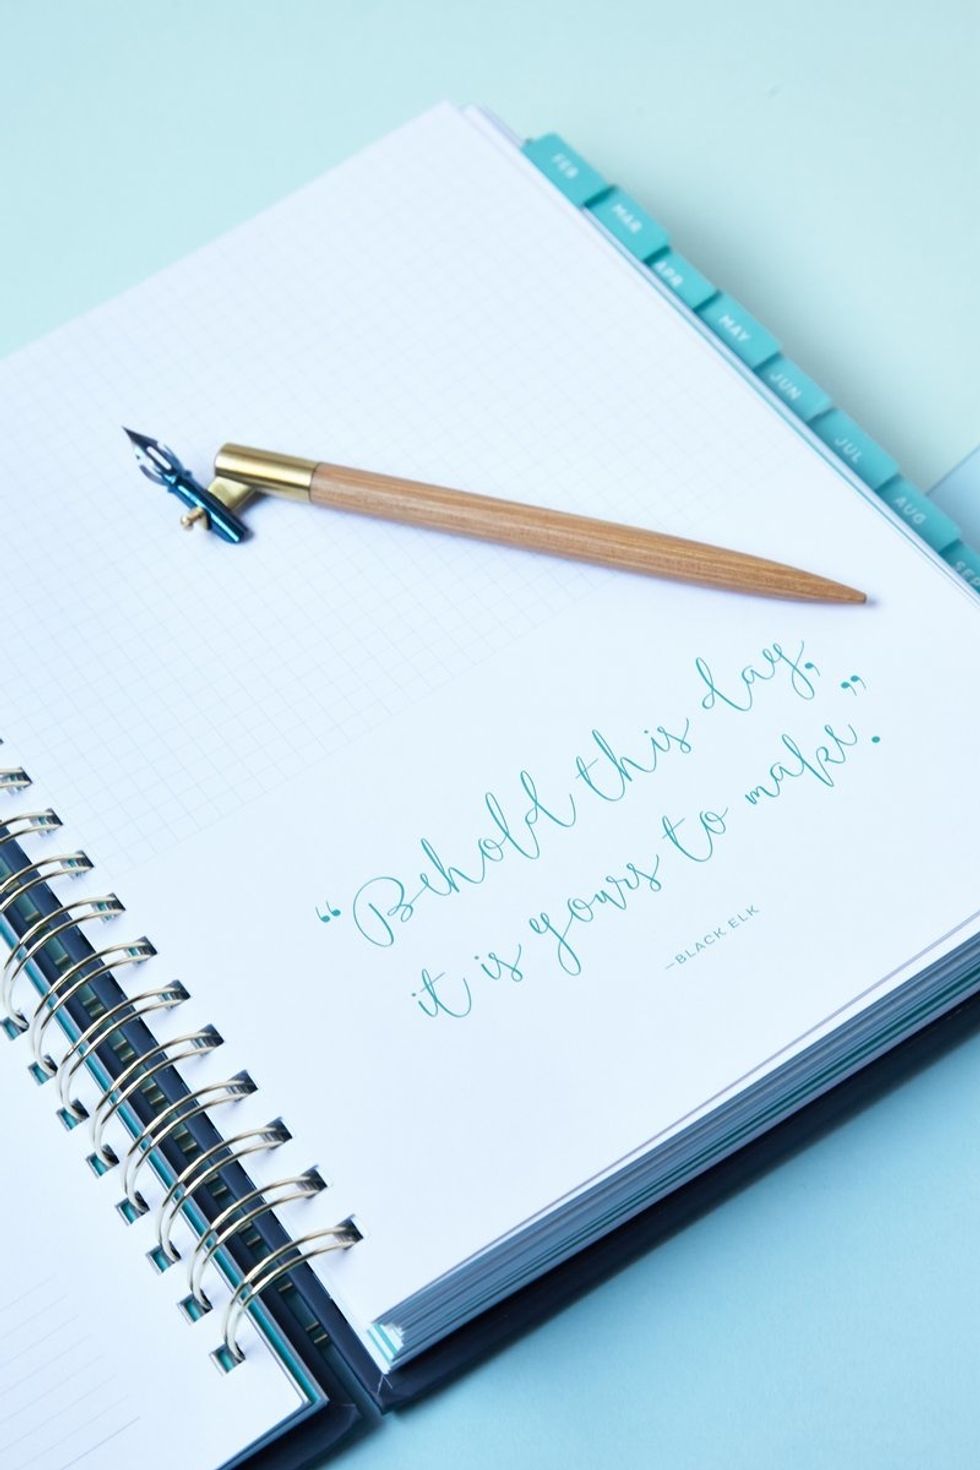 FEB
MAR
APR
MAY
JUN
JUL
AUG
SEP
“Behold this day,
it is yours to make.”
—BLACK ELK